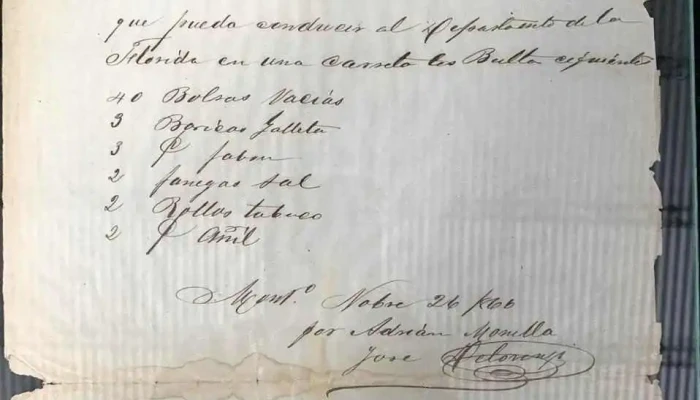 que pueda conducir al Departamento de la
Florida en una carreta los Bultos siguientes
40 Bolsas Vacias
3 Baricas Galleta
3 C/ Jabon
2 fanegas sal
2 Rollos tabaco
2 C/ Añil
Mont.º Nobre 26 1866
por Adrián
Jose